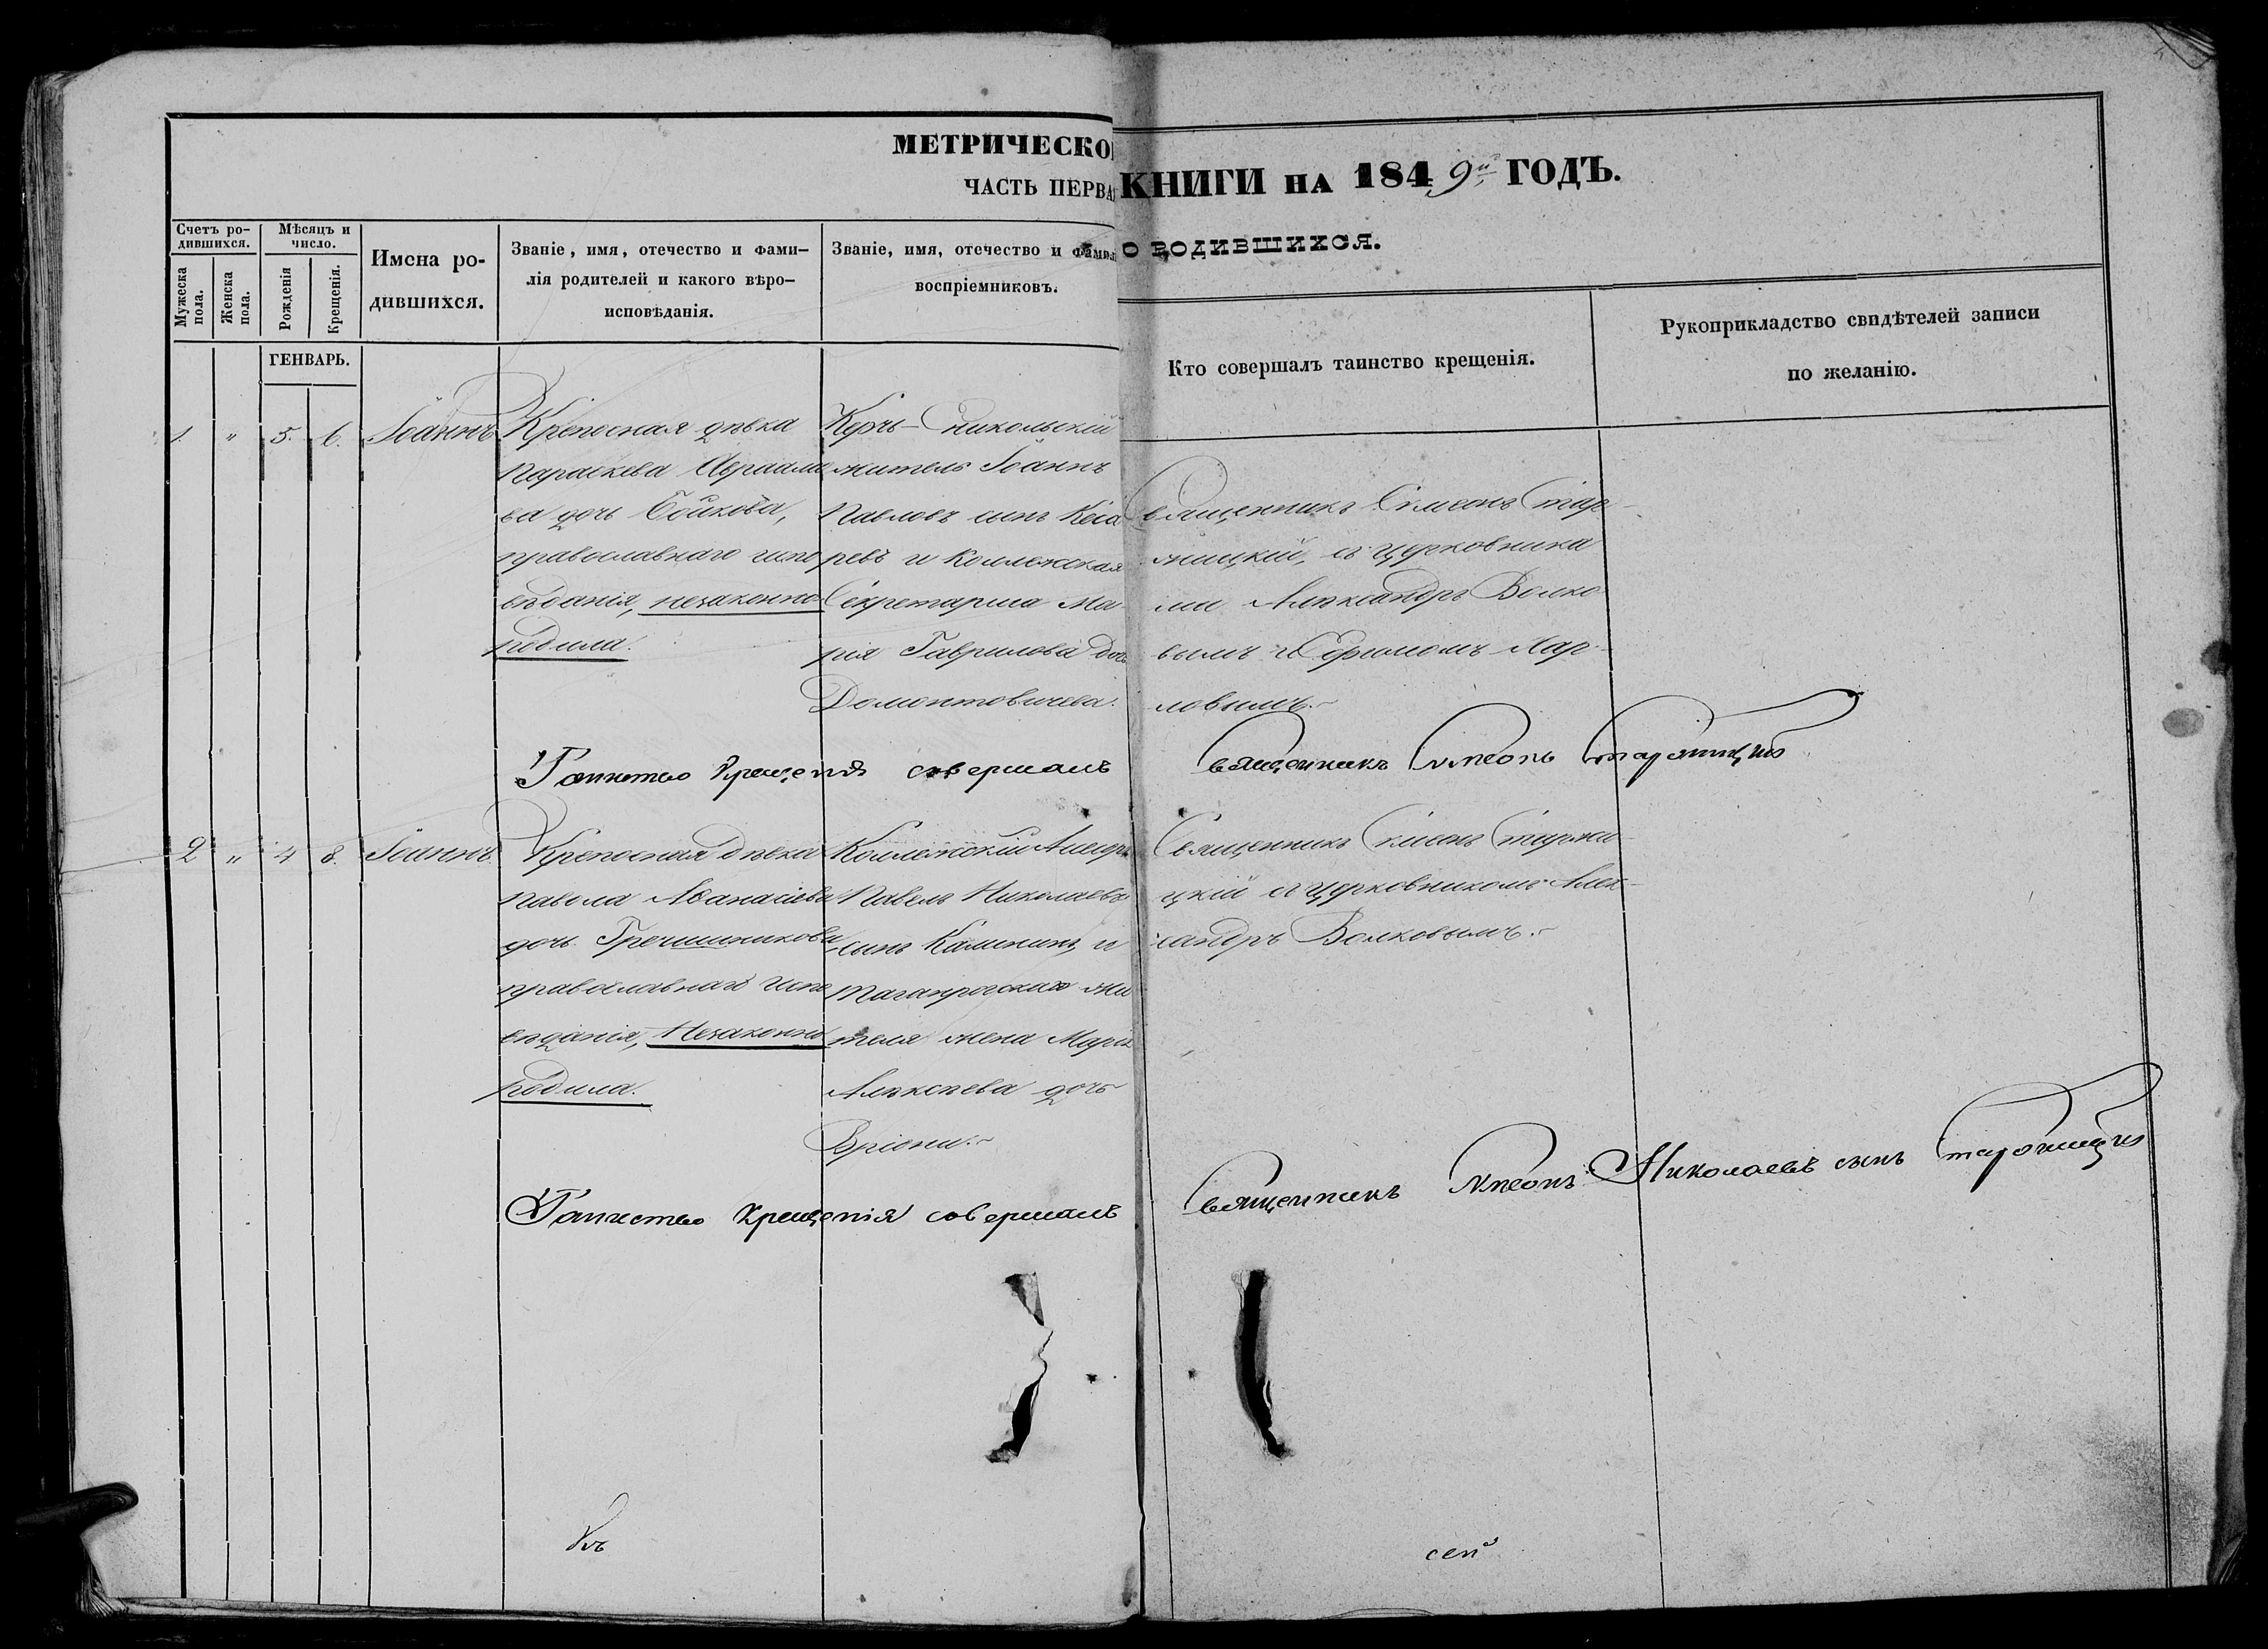 МЕТРИЧЕСКОЙ КНИГИ НА 1849й ГОДЪ.
ЧАСТЬ ПЕРВАЯ О РОДИВШИХСЯ.
Счетъ ро-
дившихся.
Мужеска
пола.
Женска
пола.
Мѣсяцъ и
число.
Рожденія
Крещенія.
Имена ро-
дившихся.
Званіе, имя, отечество и фами-
лія родителей и какого вѣро-
исповѣданія.
Званіе, имя, отечество и фамилі
воспріемниковъ.
Кто совершалъ таинство крещенія.
Рукоприкладство свидѣтелей записи
по желанію.
ГЕНВАРЬ.
1. " 5. 6. Іоаннъ
Крепосная дѣвка
Параскева Авраамо
ва дочь Бойкова,
православнаго испо
вѣданія, незаконно
родила.
Керчь-Еникольскій
житель Іоаннъ
Павловъ сынъ Кеса
ревъ и Коллежская
Секретарша Ма-
рія Гаврилова дочь
Домонтовичева.
Священникъ Симеонъ Стар-
жицкій, съ церковника
ми Александръ Волко
вымъ и Ефимомъ Кар-
ловымъ.
Таинство Крещенія совершалъ Священникъ Симеонъ Старжицкій
2 " 4 8. Іоаннъ.
Крепосная дѣвка
Павола Аѳанасіева
дочь Гречишникова
православнаго испо
вѣданія, Незаконно
родила.
Коллежскій Ассесоръ
Павелъ Николаевъ
сынъ Калининъ, и
Таганрогскаго жи
теля жена Марія
Алексѣева дочь
Вріони.
Священникъ Симеонъ Старжи-
цкій съ церковникомъ Алек-
сандръ Волковымъ.
Таинство крещенія совершалъ Священникъ Симеонъ Николаевъ сынъ Старжицкій
сей